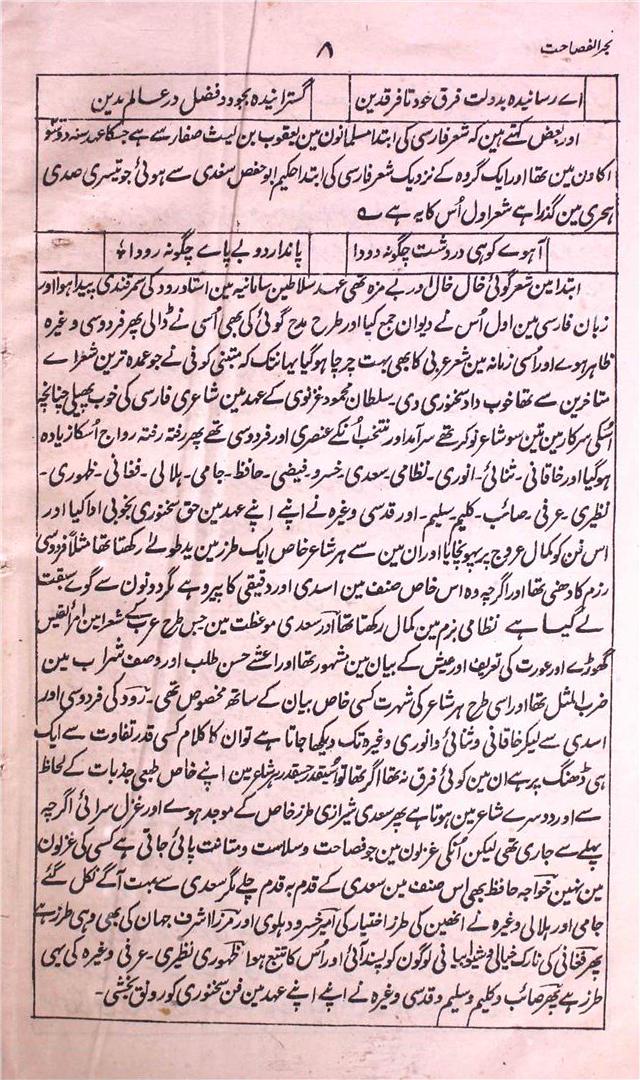 بحر الفصاحت
۸
اے رسانیدہ بدولت فرق خود تا فرقدین گسترانیدہ بجود و فضل در عالم یدین
اور بعض کہتے ہین کہ شعر فارسی کی ابتدا مسلمانون مین یعقوب بن لیث صفار سے ہے جسکا عہد سنہ دو سو
اکاون مین تھا اور ایک گروہ کے نزدیک شعر فارسی کی ابتدا حکیم ابو حفص سغدی سے ہوئی جو تیسری صدی
ہجری مین گذرا ہے شعر اول اُس کا یہ ہے
آہوے کوہی در دشت چگونہ دودا پاندارد و بے پاے چگونہ رودا
ابتدا مین شعر گوئی خال خال اور بے مزہ تھی عہد سلاطین سامانیہ مین استاد رودکی سمرقندی پیدا ہوا اور
زبان فارسی مین اول اُس نے دیوان جمع کیا اور طرح مدح گوئی کی بھی اُسی نے ڈالی پھر فردوسی وغیرہ
ظاہر ہوے اور اُسی زمانہ مین شعر عربی کا بھی بہت چرچا ہوگیا یہانتک کہ متنبی کوفی نے جو عمدہ ترین شعراے
متاخرین سے تھا خوب داد سخنوری دی۔ سلطان محمود غزنوی کے عہد مین شاعری فارسی کی خوب پھیلی چنانچہ
اُسکی سرکار مین تین سو شاعر نوکر تھے سرآمد اور منتخب اُنکے عنصری اور فردوسی تھے پھر رفتہ رفتہ رواج اُسکا زیادہ
ہوگیا اور خاقانی۔ ثنائی۔ انوری۔ نظامی۔ سعدی۔ خسرو۔ فیضی۔ حافظ۔ جامی۔ ہلالی۔ فغانی۔ ظہوری۔
نظیری۔ عرفی۔ صائب۔ کلیم۔ سلیم۔ اور قدسی وغیرہ نے اپنے اپنے عہد مین حق سخنوری بخوبی ادا کیا اور
اس فن کو کمال عروج پر پہونچایا اور ان مین سے ہر شاعر خاص ایک طرز مین ید طولے رکھتا تھا مثلاً فردوسی
رزم کا دھنی تھا اور اگرچہ وہ اس خاص صنف مین اسدی اور دقیقی کا پیرو ہے مگر دونون سے گوے سبقت
لے گیا ہے نظامی بزم مین کمال رکھتا تھا اور سعدی موعظت مین جس طرح عرب کے شعرا مین امرالقیس
گھوڑے اور عورت کی تعریف اور عیش کے بیان مین مشہور تھا اور اعشے حسن طلب اور وصف شراب مین
ضرب المثل تھا اور اسی طرح ہر شاعر کی شہرت کسی خاص بیان کے ساتھ مخصوص تھی۔ رودکی فردوسی اور
اسدی سے لیکر خاقانی و ثنائی و انوری وغیرہ تک دیکھا جاتا ہے تو ان کا کلام کسی قدر تفاوت سے ایک
ہی ڈھنگ پر ہے ان مین کوئی فرق نہ تھا اگر تھا تو اُسیقدر جسقدر ہر شاعر مین اپنے خاص طبعی جذبات کے لحاظ
سے اور دوسرے شاعر مین ہوتا ہے پھر سعدی شیرازی طرز خاص کے موجد ہوے اور غزل سرائی اگرچہ
پہلے سے جاری تھی لیکن اُنکی غزلون مین جو فصاحت و سلاست و متانت پائی جاتی ہے کسی کی غزلون
مین نہین خواجہ حافظ بھی اس صنف مین سعدی کے قدم بہ قدم چلے مگر سعدی سے بہت آگے نکل گئے
جامی اور ہلالی وغیرہ نے انھین کی طرز اختیار کی امیر خسرو دہلوی اور مرزا اشرف جہان کی بھی وہی طرز ہے
پھر فغانی کی نازک خیالی و شیوا بیانی لوگون کو پسند آئی اور اُس کا تتبع ہوا ظہوری نظیری۔ عرفی وغیرہ کی یہی
طرز ہے پھر صائب و کلیم و سلیم و قدسی وغیرہ نے اپنے اپنے عہد مین فن سخنوری کو رونق بخشی۔